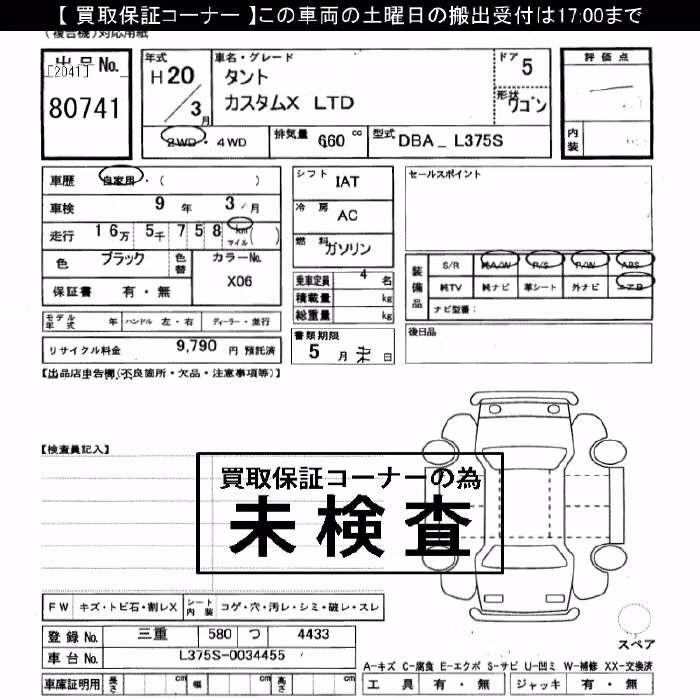 【 買取保証コーナー 】この車両の土曜日の搬出受付は17:00まで
(複合機)対応用紙
出品No.
[2041]
80741
年式
H20
3月
車名・グレード
タント
カスタムX LTD
ドア
5
形状
ワゴン
2WD・4WD
排気量 660 cc
型式 DBA_ L375S
評価点
内装
車歴 自家用・( )
車検 9年 3月
走行 16万 5千 7 5 8 km マイル ( )
色 ブラック
色替
カラーNo.
X06
保証書 有・無
シフト IAT
冷房 AC
燃料 ガソリン
乗車定員 4 名
積載量 kg
総重量 kg
セールスポイント
装備品
S/R 純A/W P/S P/W ABS
純TV 純ナビ 革シート 外ナビ エアB
ナビ型番:
モデル年式 年 ハンドル 左・右 ディーラー・並行
リサイクル料金 9,790 円 預託済
書類期限
5 月 末 日
後日品
【出品店申告欄(不良箇所・欠品・注意事項等)】
【検査員記入】
買取保証コーナーの為
未検査
FW キズ・トビ石・割レX シート内装 コゲ・穴・汚レ・シミ・破レ・スレ
登録No. 三重 580 つ 4433
車台No. L375S-0034455
スペア
A-キズ C-腐食 E-エクボ S-サビ U-凹ミ W-補修 XX-交換済
車庫証明用 長さ cm 幅 cm 高さ cm
工具 有・無 ジャッキ 有・無